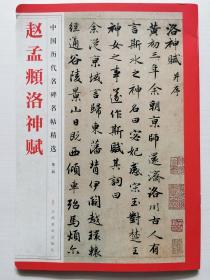 赵孟頫洛神赋
中国历代名碑名帖精选
洛神賦 并序
黃初三年余朝京師還濟洛川古人有
言斯水之神名曰宓妃感宋玉對楚王
神女之事遂作斯賦其詞曰
余從京域言歸東藩背伊闕越轘轅
經通谷陵景山日既西傾車殆馬煩尒